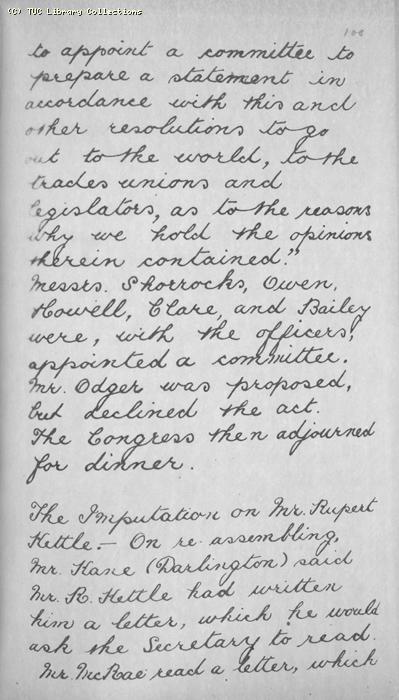 (C) TUC Library Collections
100
to appoint a committee to
prepare a statement in
accordance with this and
other resolutions to go
out to the world, to the
trades unions and
legislators, as to the reasons
why we hold the opinions
therein contained."
Messrs. Shorrocks, Owen,
Howell, Clare, and Bailey
were, with the officers,
appointed a committee.
Mr. Odger was proposed,
but declined the act.
The Congress then adjourned
for dinner.
The Imputation on Mr. Rupert
Kettle.- On re assembling,
Mr. Kane (Darlington) said
Mr. R. Kettle had written
him a letter, which he would
ask the Secretary to read.
Mr. McRae read a letter, which